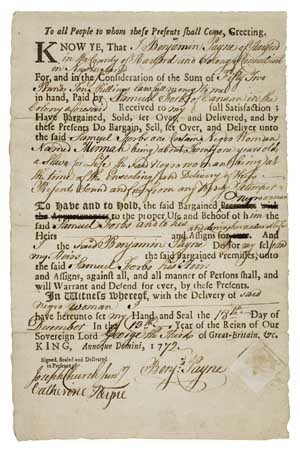 To all People to whom these Presents shall Come, Greeting.
KNOW YE, That I Benjamin Payne of Hartford
in the County of Hartford and Colony of Connecticut
For, and in the Consideration of the Sum of Fifty Two
Pounds Ten Shillings lawfull money to me
in hand, Paid by Samuel Forbs of Canaan in the
Colony aforesaid Received to my full Satisfaction;
Have Bargained, Sold, set Over, and Delivered, and by
these Presents Do Bargain, Sell, set Over, and Deliver unto
the said Samuel Forbs one Negro Woman
Named being about years old
a Slave for Life the Said Negro woman
the time of the Ensealing and Delivery of these
Presents
Negro woman
To have and to hold, the said Bargained Premises with
the Appurtenances to the proper Use and Behoof of him the
said Samuel Forbs and to his
Heirs and Assigns for
I the Said Benjamin Payne Do for my self and
my Heirs the said Bargained Premisses, unto
the said Samuel Forbs his Heirs
and Assigns, against all, and all manner of Persons shall, and
will Warrant and Defend for ever, by these Presents.
In Witness whereof, with the Delivery of said
Negro woman I
have hereunto set my Hand and Seal the Day of
December In the 13th Year of the Reign of Our
Sovereign Lord George the Third of Great-Britain, &c.
KING, Annoque Domini, 1772
Signed, Sealed and Delivered
in Presence of
Joseph Church Benj. Payne
Catherine Payne